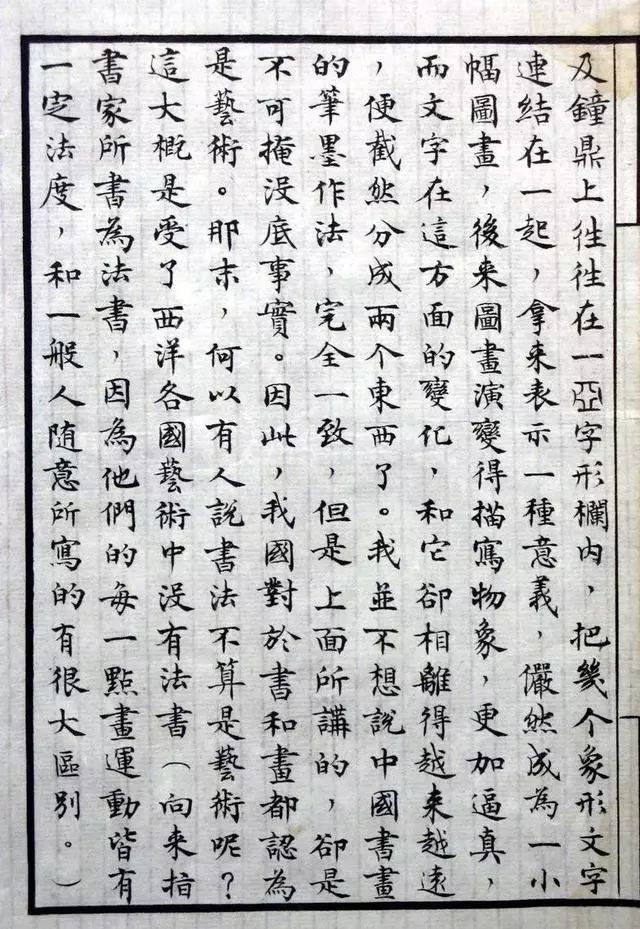 及鐘鼎上徃徃在一亞字形欄內，把幾个象形文字
連結在一起，拿来表示一種意義，儼然成為一小
幅圖畫，後来圖畫演變得描寫物象，更加逼真，
而文字在這方面的變化，和它卻相離得越来越遠
，便截然分成兩个東西了。我並不想說中國書畫
的筆墨作法，完全一致，但是上面所講的，卻是
不可掩没底事實。因此，我國對於書和畫都認為
是藝術。那末，何以有人說書法不算是藝術呢？
這大概是受了西洋各國藝術中没有法書（向来指
書家所書為法書，因為他們的每一點畫運動皆有
一定法度，和一般人随意所寫的有很大區别。）